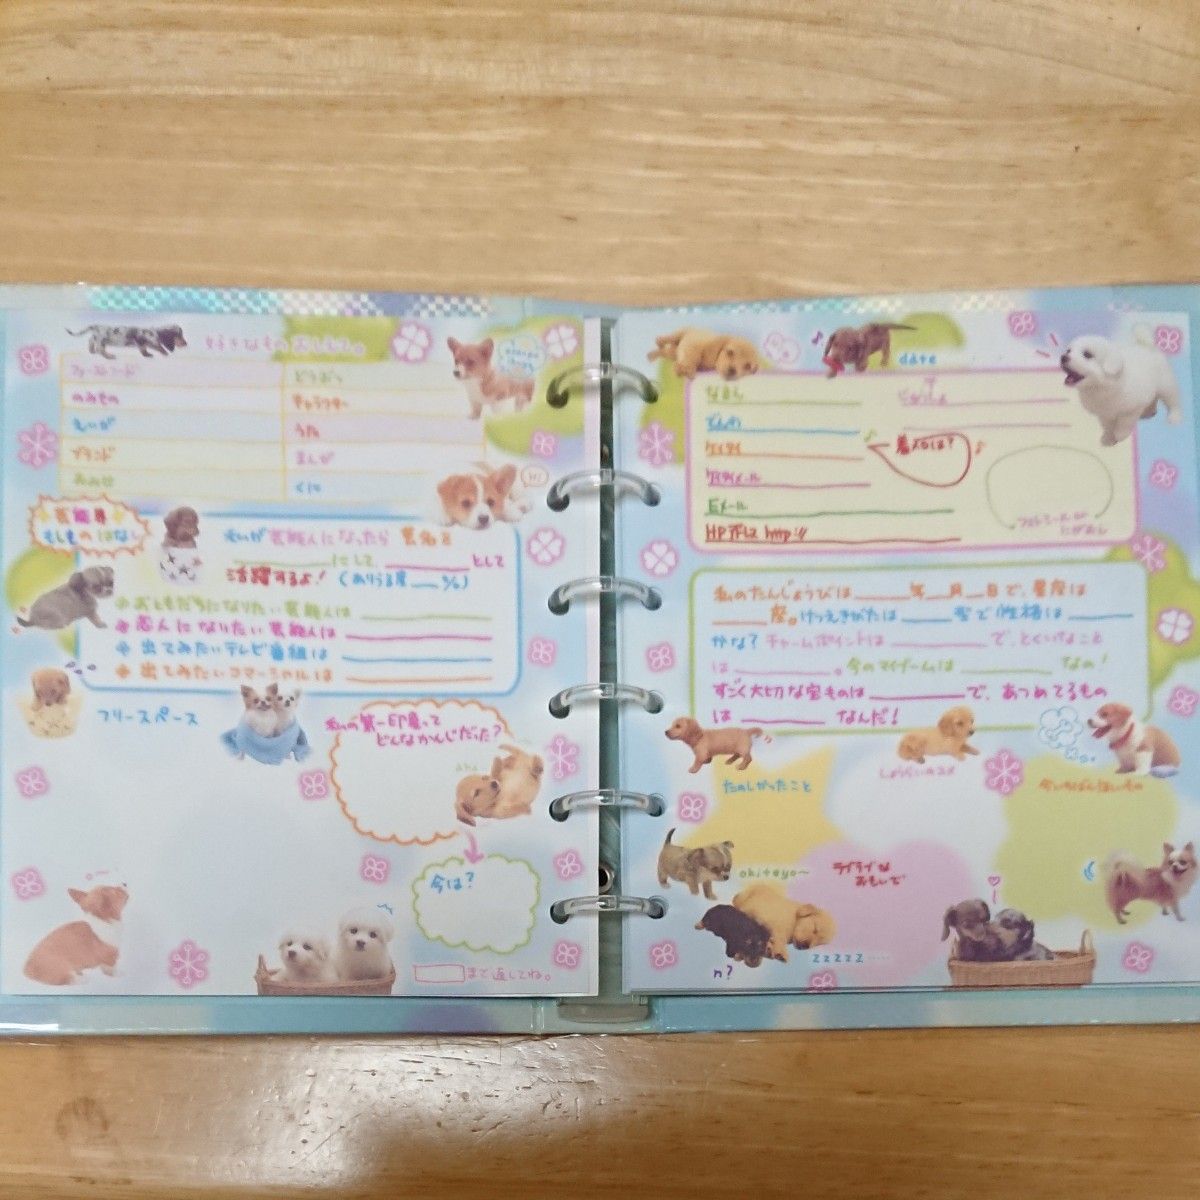 好きなものおしえて。
ファーストフード
どうぶつ
のみもの
キャラクター
えいが
うた
ブランド
まんが
おみせ
くに
Hi
芸能界
もしものはなし
私が芸能人になったら芸名を
______にして、______として
活躍するよ! (ありうる度___%)
おともだちになりたい芸能人は
恋人になりたい芸能人は
出てみたいテレビ番組は
出てみたいコマーシャルは
フリースペース
私の第一印象って
どんなかんじだった?
今は?
まで返してね。
date
なまえ
じゅうしょ
でんわ
ケイタイ
着メロは?
ケイタイメール
Eメール
HPアドレス http://
私のたんじょうびは______年__月__日で、星座は
____座。けつえきがたは____型で性格は____
かな? チャームポイントは______で、とくいなこと
は______。今のマイブームは______なの!
すごく大切な宝ものは______で、あつめてるもの
は______なんだ!
たのしかったこと
しょうらいのユメ
今いちばんほしいもの
okiteyo~
ラブラブな
おもいで
n?
zzzzz.....